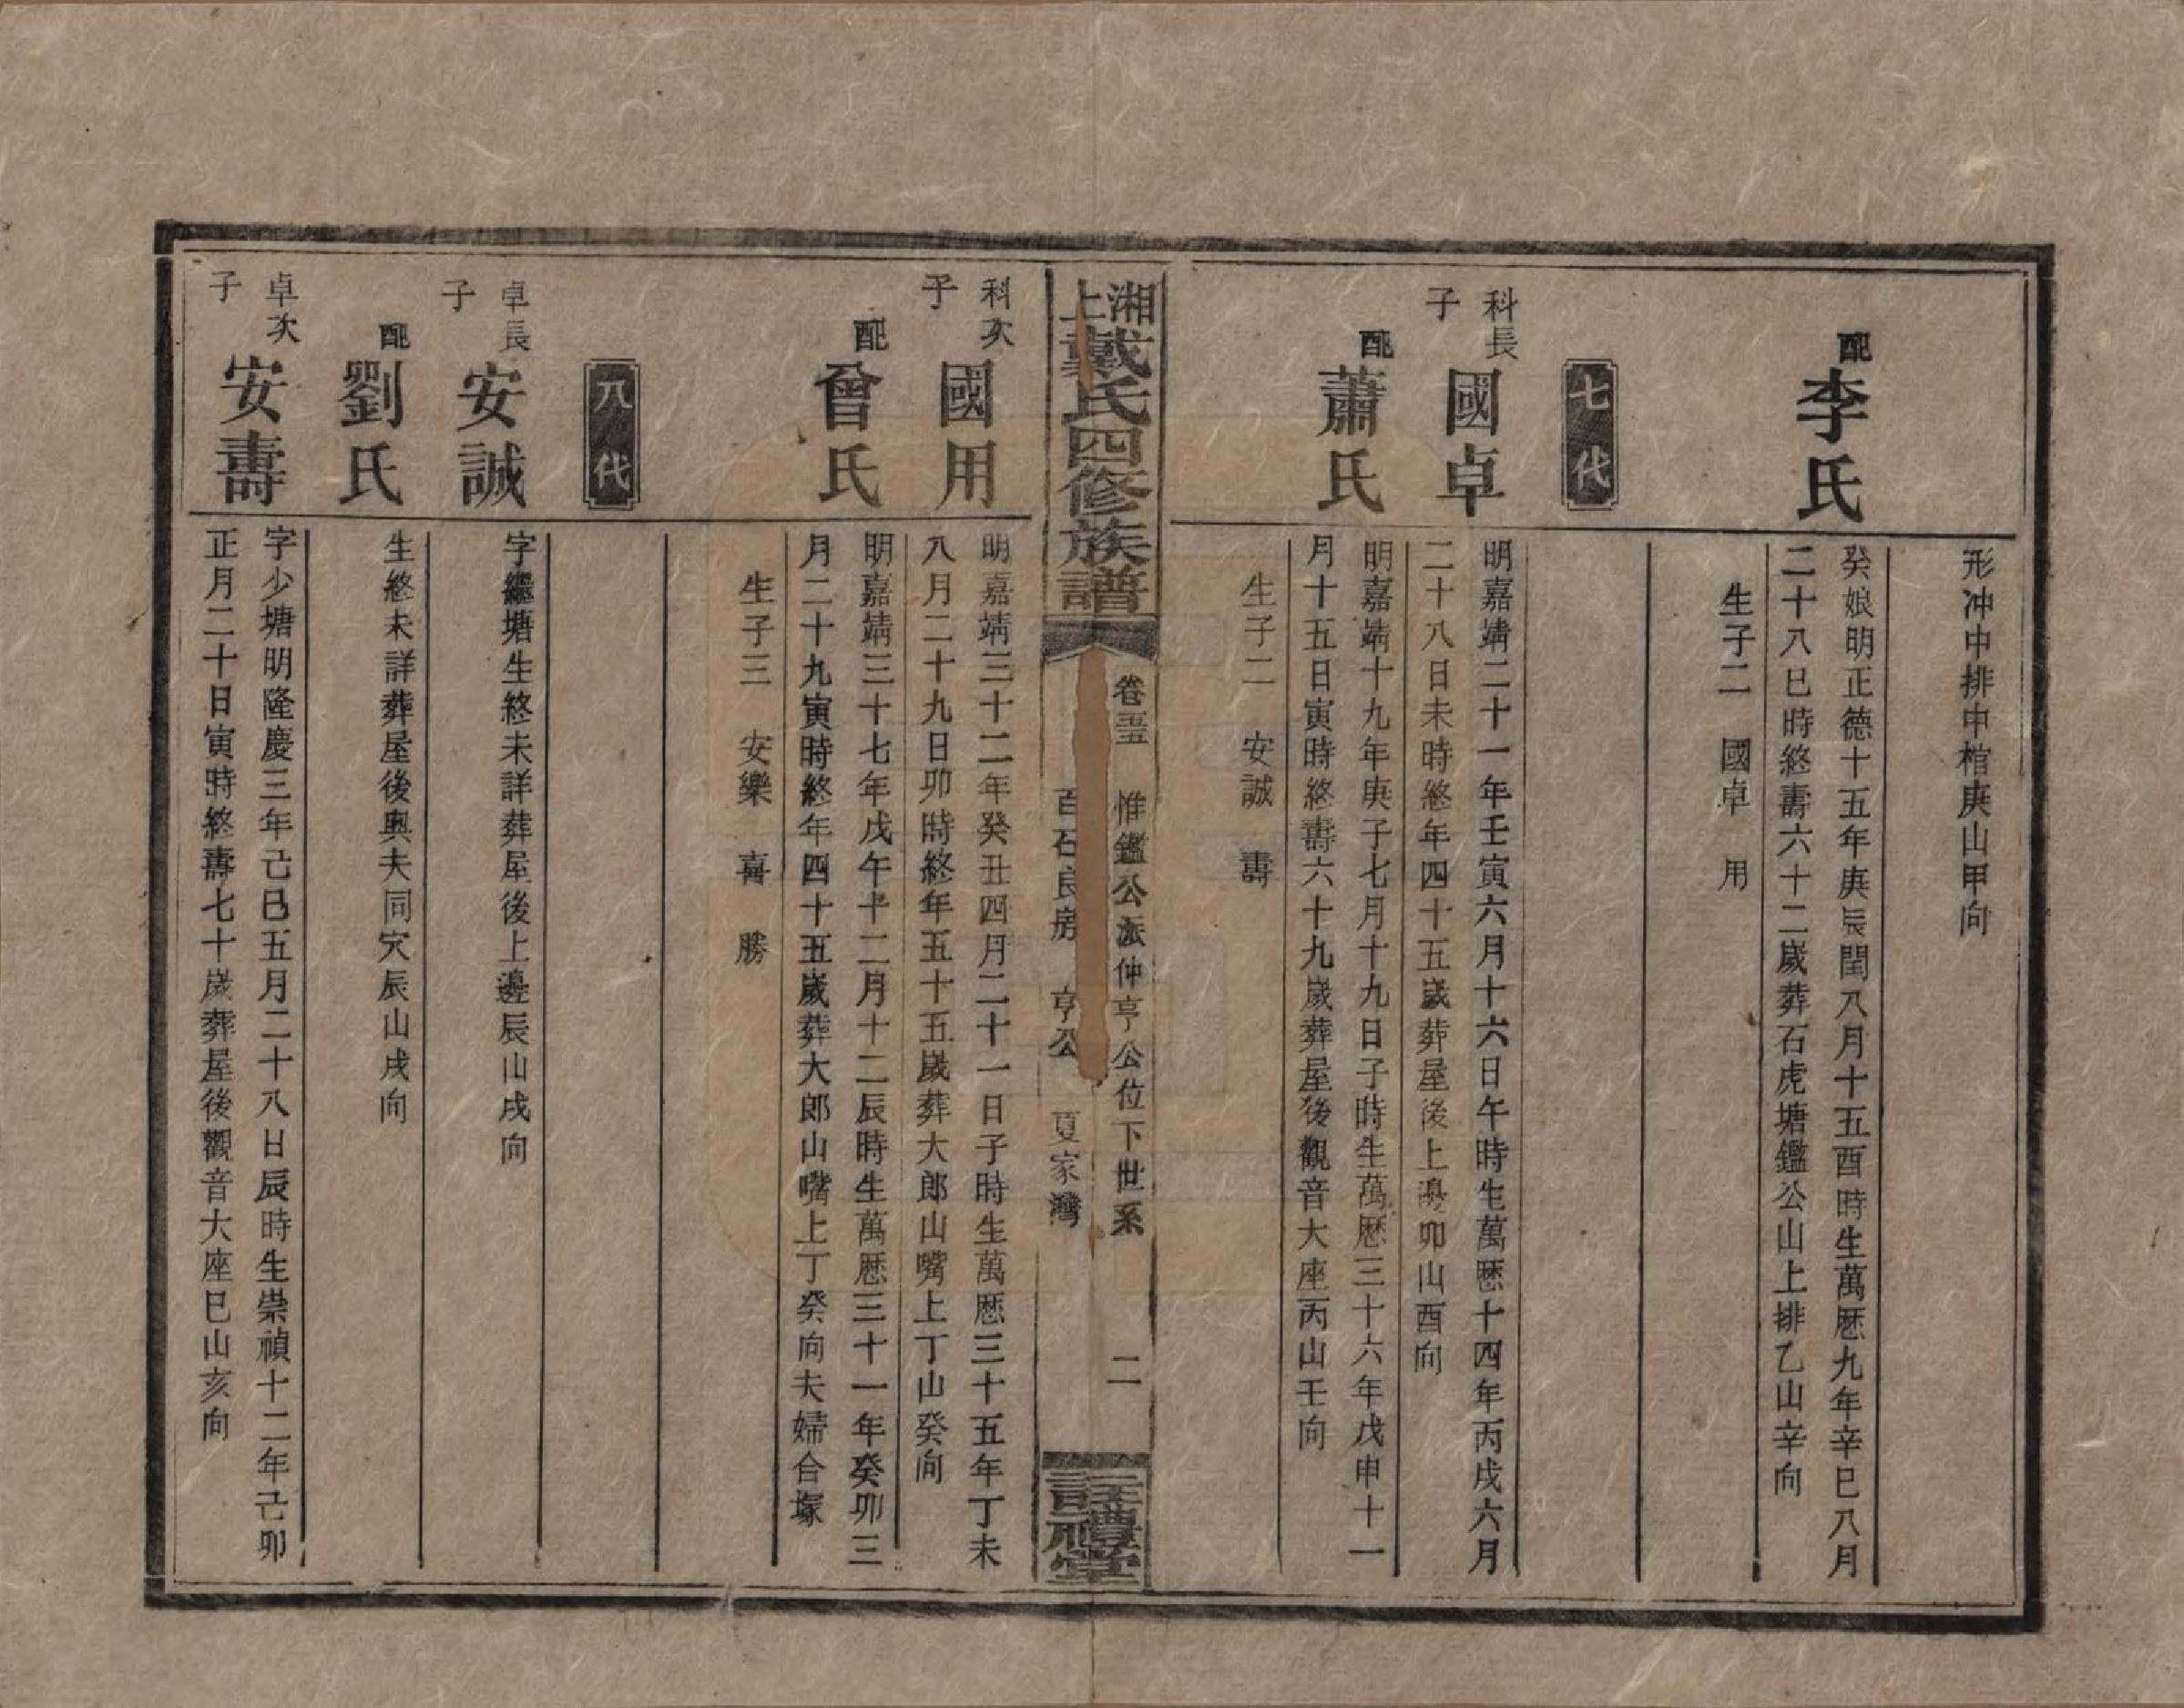 形冲中排中棺庚山甲向
配李氏
癸娘明正德十五年庚辰閏八月十五酉時生萬厯九年辛巳八月
二十八巳時終壽六十二歲葬石虎塘鑑公山上排乙山辛向
生子二　國卓　用
七代
科長子
國卓
明嘉靖二十一年壬寅六月十六日午時生萬厯十四年丙戌六月
二十八日未時終年四十五歲葬屋後上邊卯山酉向
配蕭氏
明嘉靖十九年庚子七月十九日子時生萬厯三十六年戊申十一
月十五日寅時終壽六十九歲葬屋後觀音大座丙山壬向
生子二　安誠　壽
湘上戴氏四修族譜
卷五　惟鑑公派仲亨公位下世系　二
百石良房　亨公　夏家灣
註禮堂
科次子
國用
明嘉靖三十二年癸丑四月二十一日子時生萬厯三十五年丁未
八月二十九日卯時終年五十五歲葬大郎山嘴上丁山癸向
配曾氏
明嘉靖三十七年戊午十二月十二辰時生萬厯三十一年癸卯三
月二十九寅時終年四十五歲葬大郎山嘴上丁癸向夫婦合塚
生子三　安樂　喜　勝
八代
卓長子
安誠
字繼塘生終未詳葬屋後上邊辰山戌向
配劉氏
生終未詳葬屋後與夫同穴辰山戌向
卓次子
安壽
字少塘明隆慶三年己巳五月二十八日辰時生崇禎十二年己卯
正月二十日寅時終壽七十歲葬屋後觀音大座巳山亥向